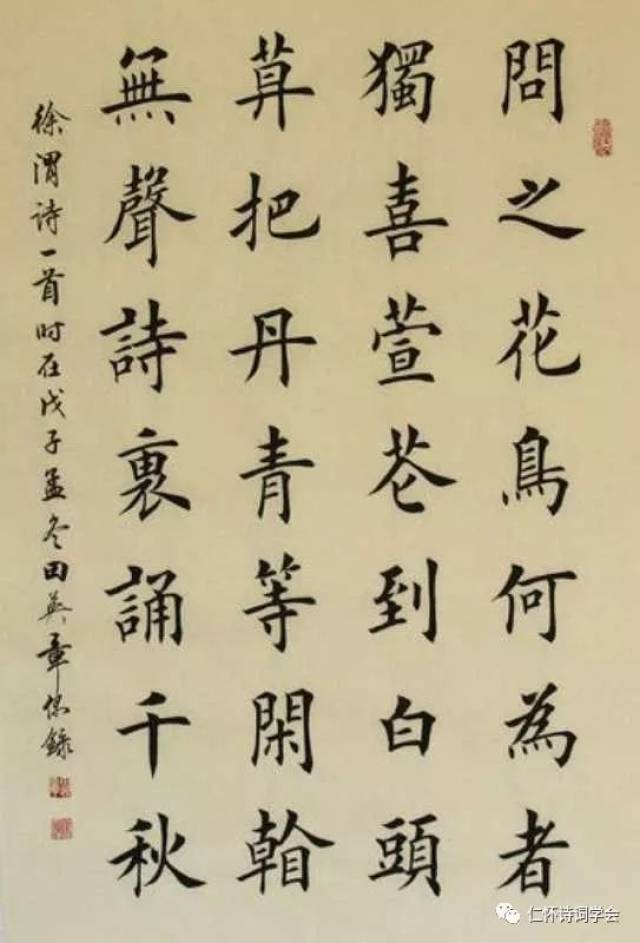 問之花鳥何為者
獨喜萱芲到白頭
莫把丹青等閑看
無聲詩裏誦千秋
徐渭诗一首时在戊子孟冬田英章錄
仁怀诗词学会